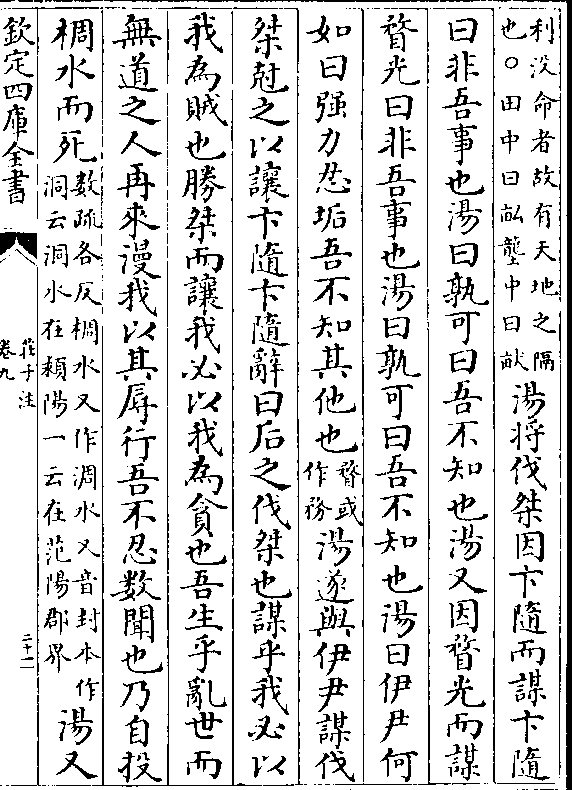 利没命者故有天地之隔
也○田中曰畝壟中曰畎
湯將伐桀因卞隨而謀卞隨
曰非吾事也湯曰孰可曰吾不知也湯又因瞀光而謀
瞀光曰非吾事也湯曰孰可曰吾不知也湯曰伊尹何
如曰强力忍垢吾不知其他也
瞀或
作務
湯遂與伊尹謀伐
桀尅之以讓卞隨卞隨辭曰后之伐桀也謀乎我必以
我為賊也勝桀而讓我必以我為貪也吾生乎亂世而
無道之人再來漫我以其辱行吾不忍數聞也乃自投
椆水而死
數疏各反椆水又作淍水又音封本作
洞云洞水在潁陽一云在范陽郡界
湯又
欽定四庫全書
莊子注
卷九
二十一